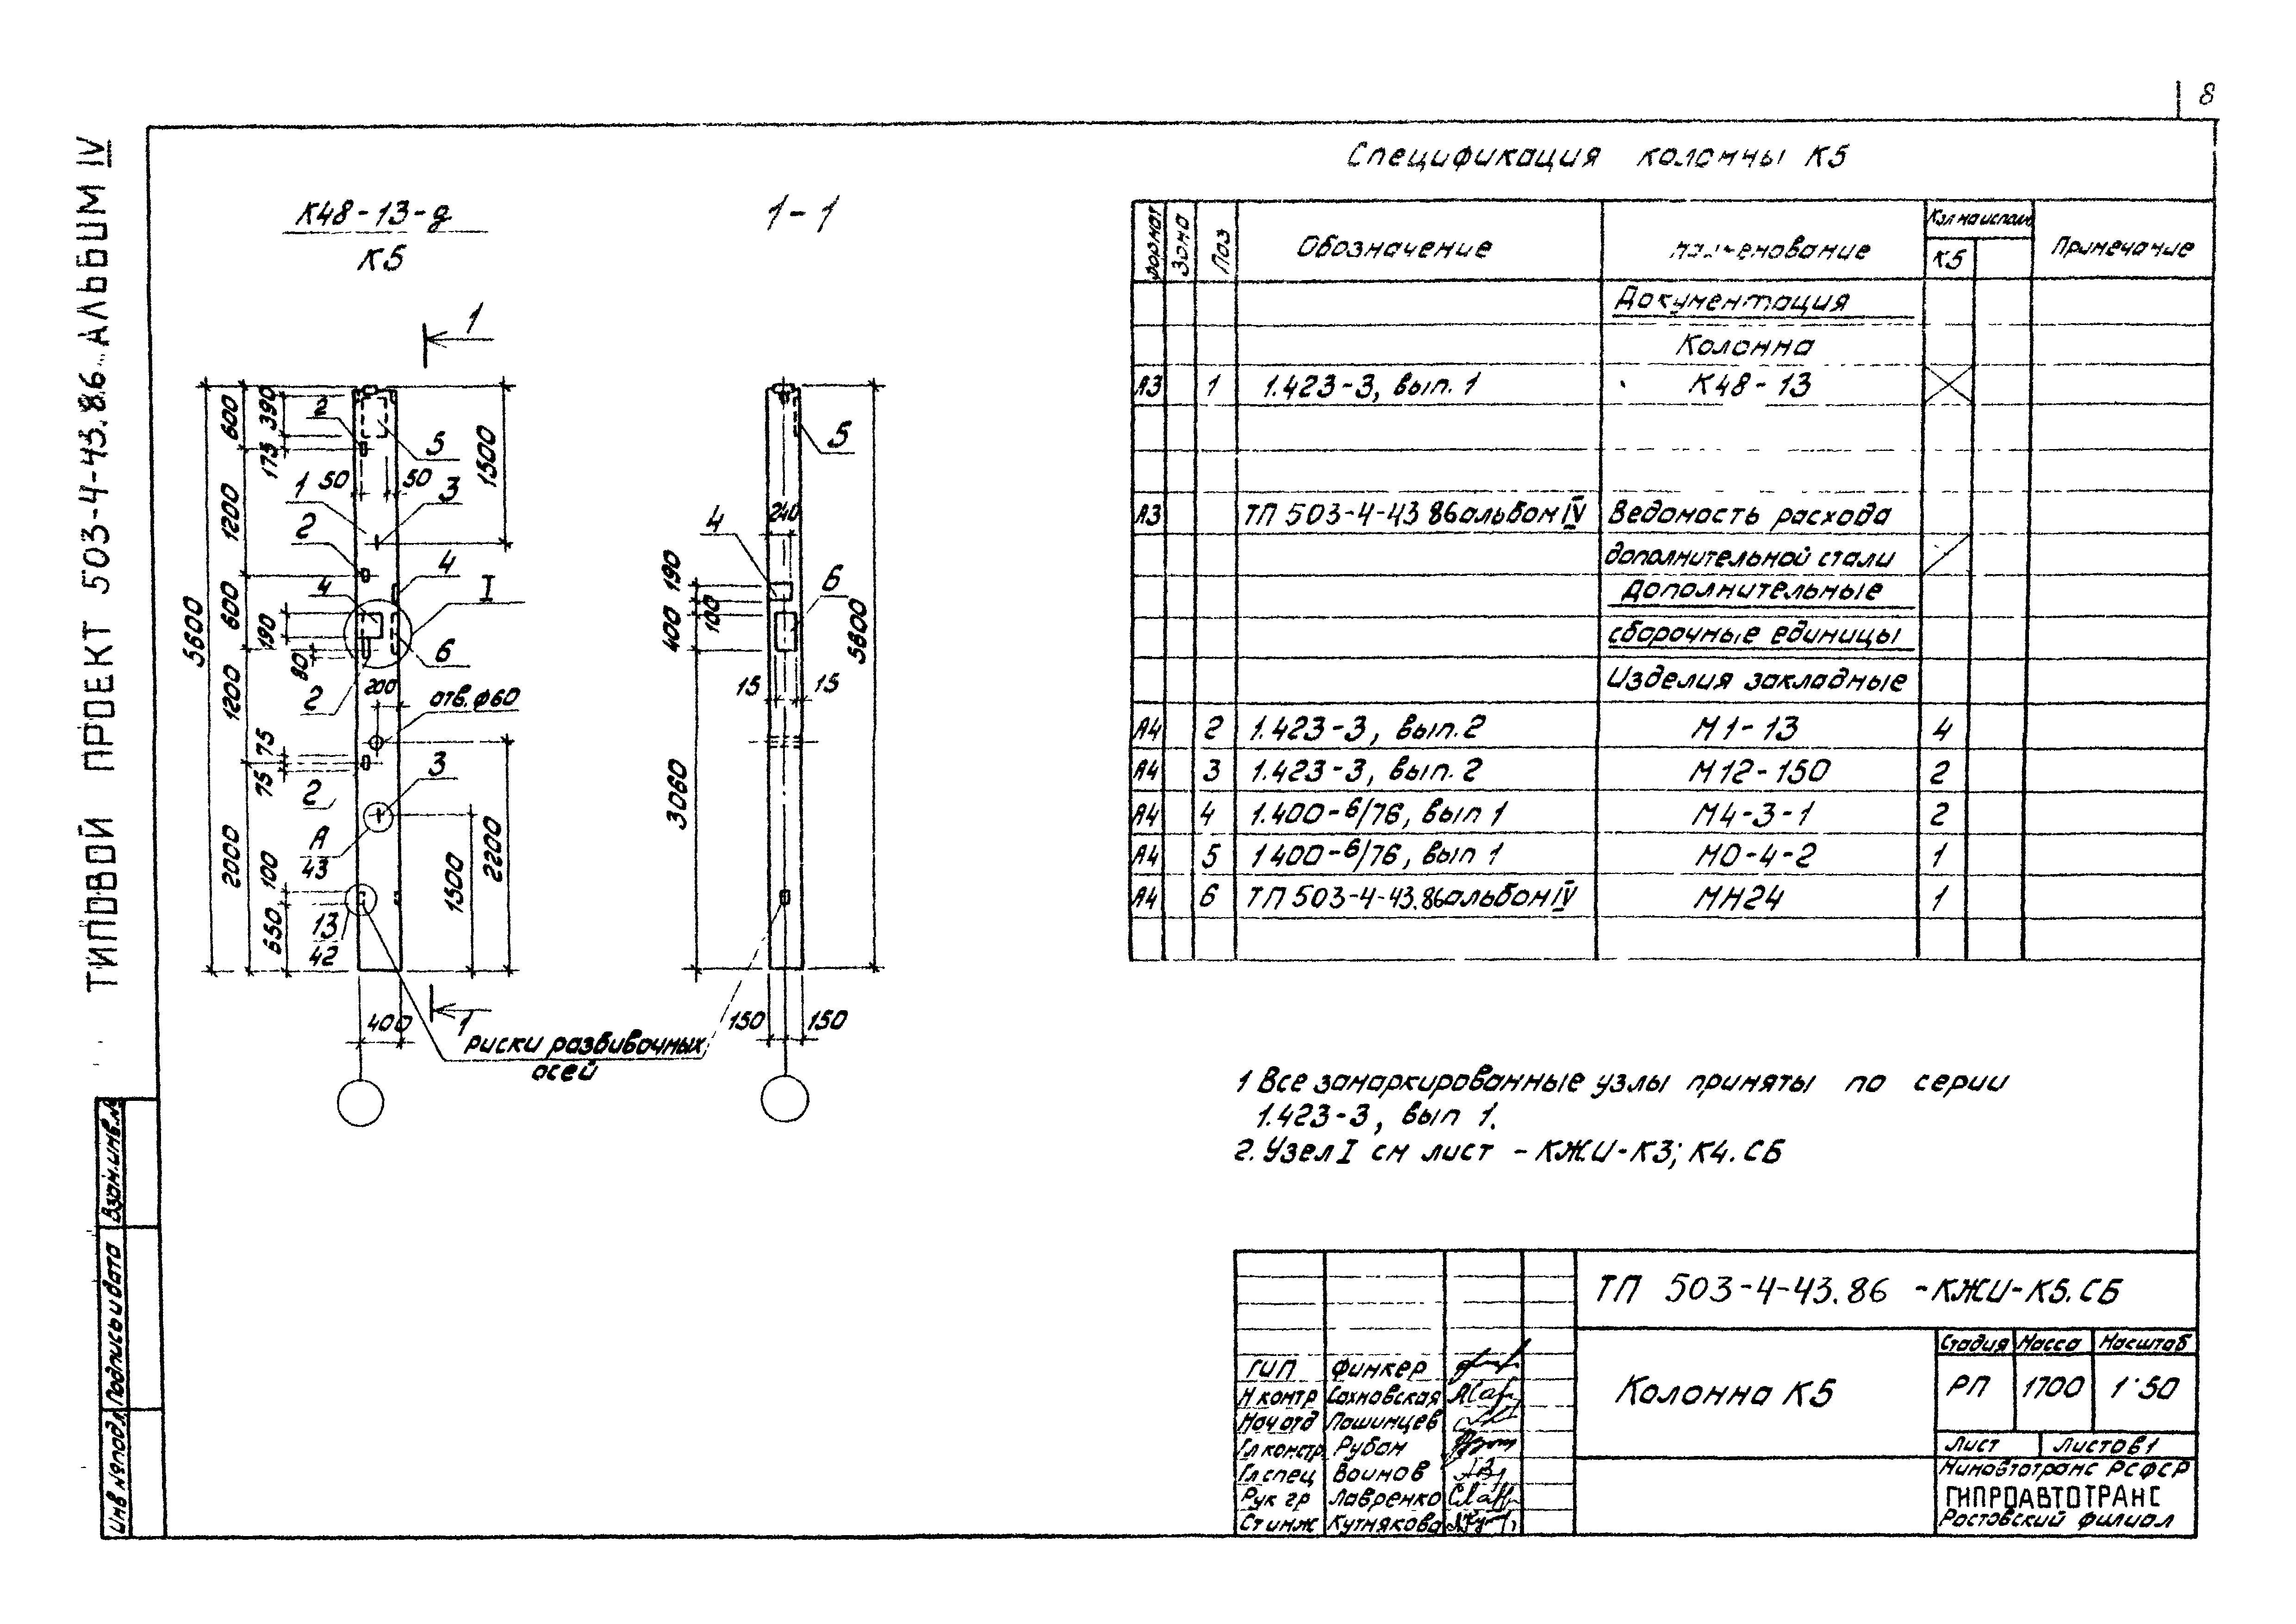 8
ТИПОВОЙ ПРОЕКТ 503-4-43.86 АЛЬБОМ IV
К48-13-д
К5
1-1
1
5600
600
390
175
1200
600
190
80
1200
75
75
2000
100
650
2
5
1
50
50
3
2
4
4
I
6
2
200
отв. ф60
3
2
А
43
13
42
1500
1500
2200
400
1
риски разбивочных
осей
5
240
4
6
190
100
400
15
15
3060
5600
150
150
Спецификация колонны К5
Формат Зона Поз Обозначение Наименование Кол на исполн Примечание
К5
Документация
Колонна
А3 1 1.423-3, вып. 1 К48-13
А3 ТП 503-4-43 86 альбом IV Ведомость расхода
дополнительной стали
Дополнительные
сборочные единицы
Изделия закладные
А4 2 1.423-3, вып. 2 М1-13 4
А4 3 1.423-3, вып. 2 М12-150 2
А4 4 1.400-6/76, вып 1 М4-3-1 2
А4 5 1 400-6/76, вып 1 М0-4-2 1
А4 6 ТП 503-4-43.86 альбом IV МН24 1
1 Все замаркированные узлы приняты по серии
1.423-3, вып 1.
2. Узел I см лист -КЖИ-К3; К4.СБ
ТП 503-4-43.86 -КЖИ-К5.СБ
Колонна К5
Стадия Масса Масштаб
РП 1700 1:50
Лист Листов 1
Минавтотранс РСФСР
ГИПРОАВТОТРАНС
Ростовский филиал
ГИП Финкер
Н контр Сахновская
Нач отд Пашинцев
Гл констр Рубан
Гл спец Воинов
Рук гр Лавренко
Ст инж Кутнякова
Взам. инв. №
Подпись и дата
Инв № подл